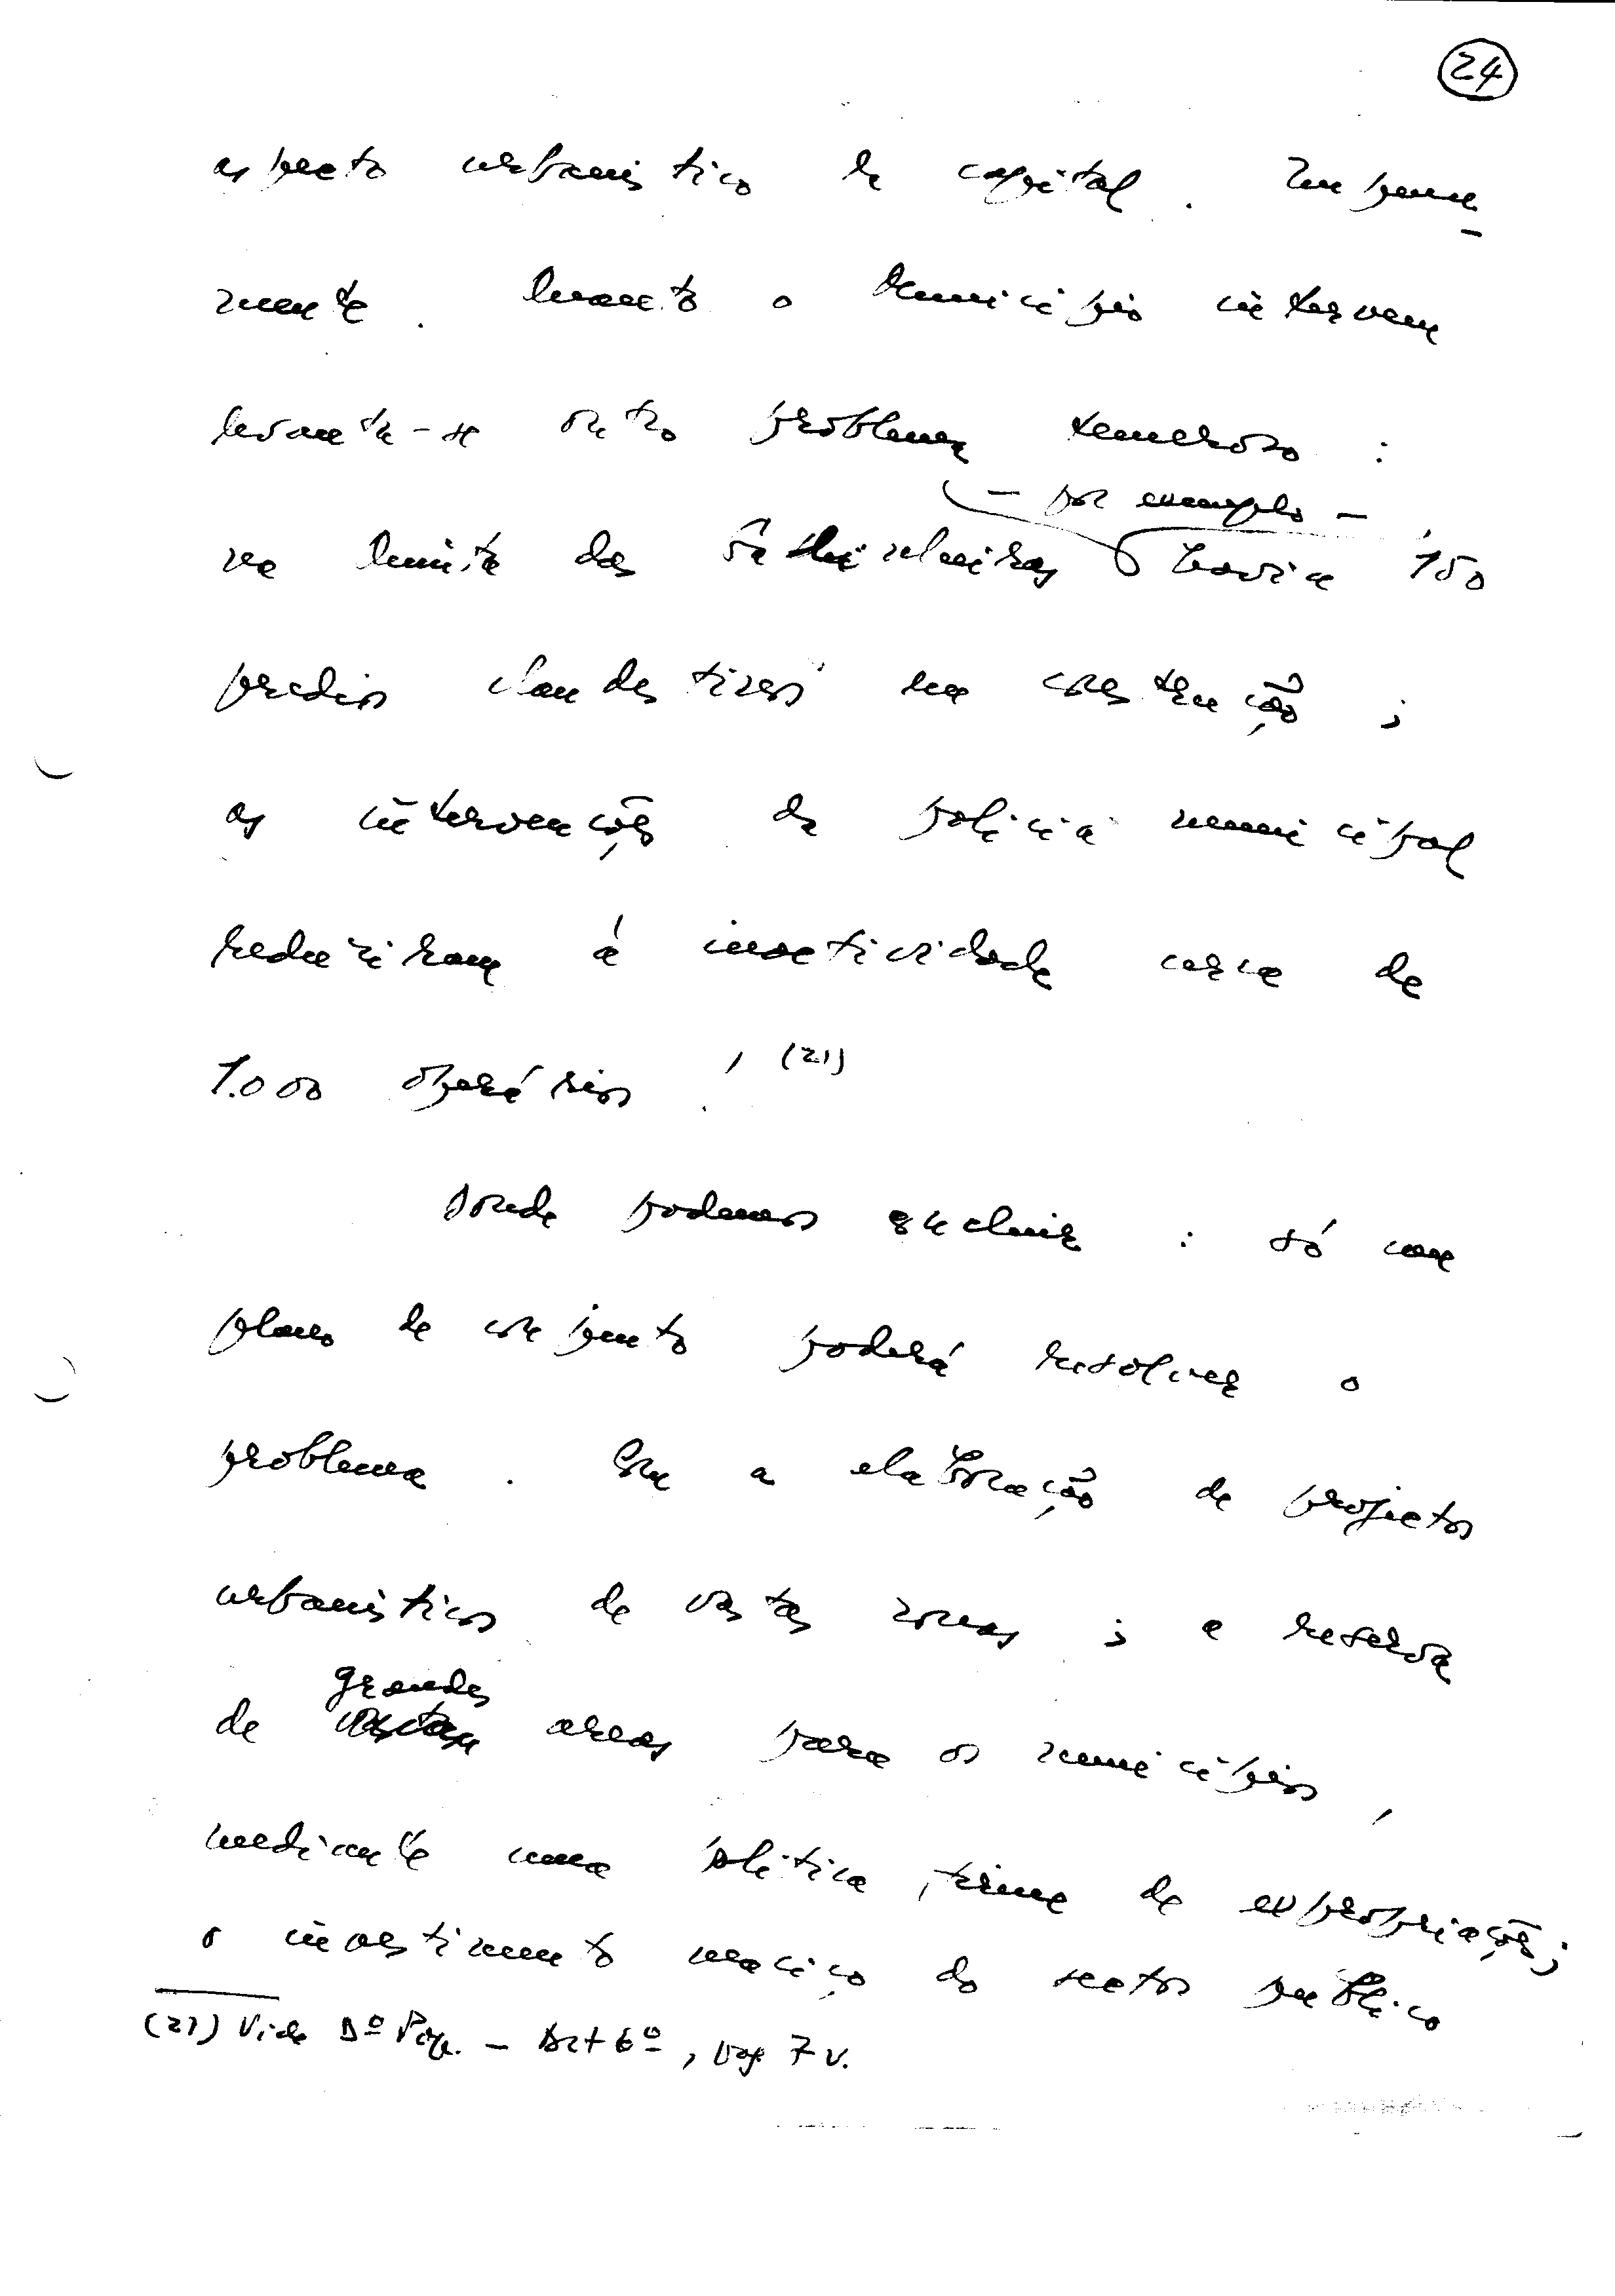 24
aspecto urbanistico da capital. Impune-
mente. Quando o Municipio intervem
levanta-se outro problema temeroso :
— por exemplo —
na limite das havia 150
predios clandestinos na construção ;
as intervenções da policia municipal
reduziram á inactividade cerca de
1.000 operários ! (21)
Donde podemos concluir : só um
plano de conjunto poderá resolver o
problema. Com a elaboração de projectos
urbanisticos de vastas zonas ; a reserva
grandes
de vastas areas para os municipios,
mediante uma politica firme de expropriações ;
o investimento maciço do sector público
(21) Vide Dº Pop. — Art 6º, pag 7 v.